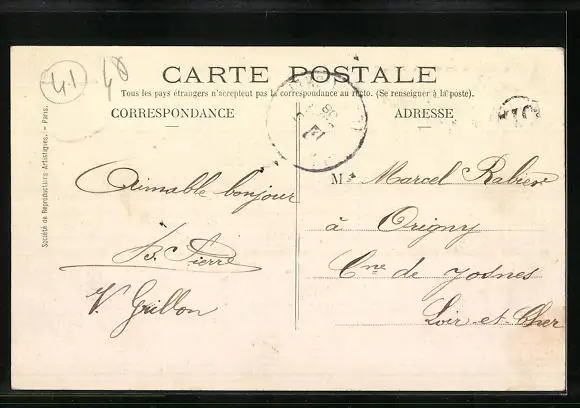 41
48
CARTE POSTALE
Tous les pays étrangers n'acceptent pas la correspondance au recto. (Se renseigner à la poste).
CORRESPONDANCE
ADRESSE
Société de Reproductions Artistiques. — Paris.
Aimable bonjour
Pierre
V. Grillon
M. Marcel Rabier
à Origny
Cne de Josnes
Loir-et-Cher